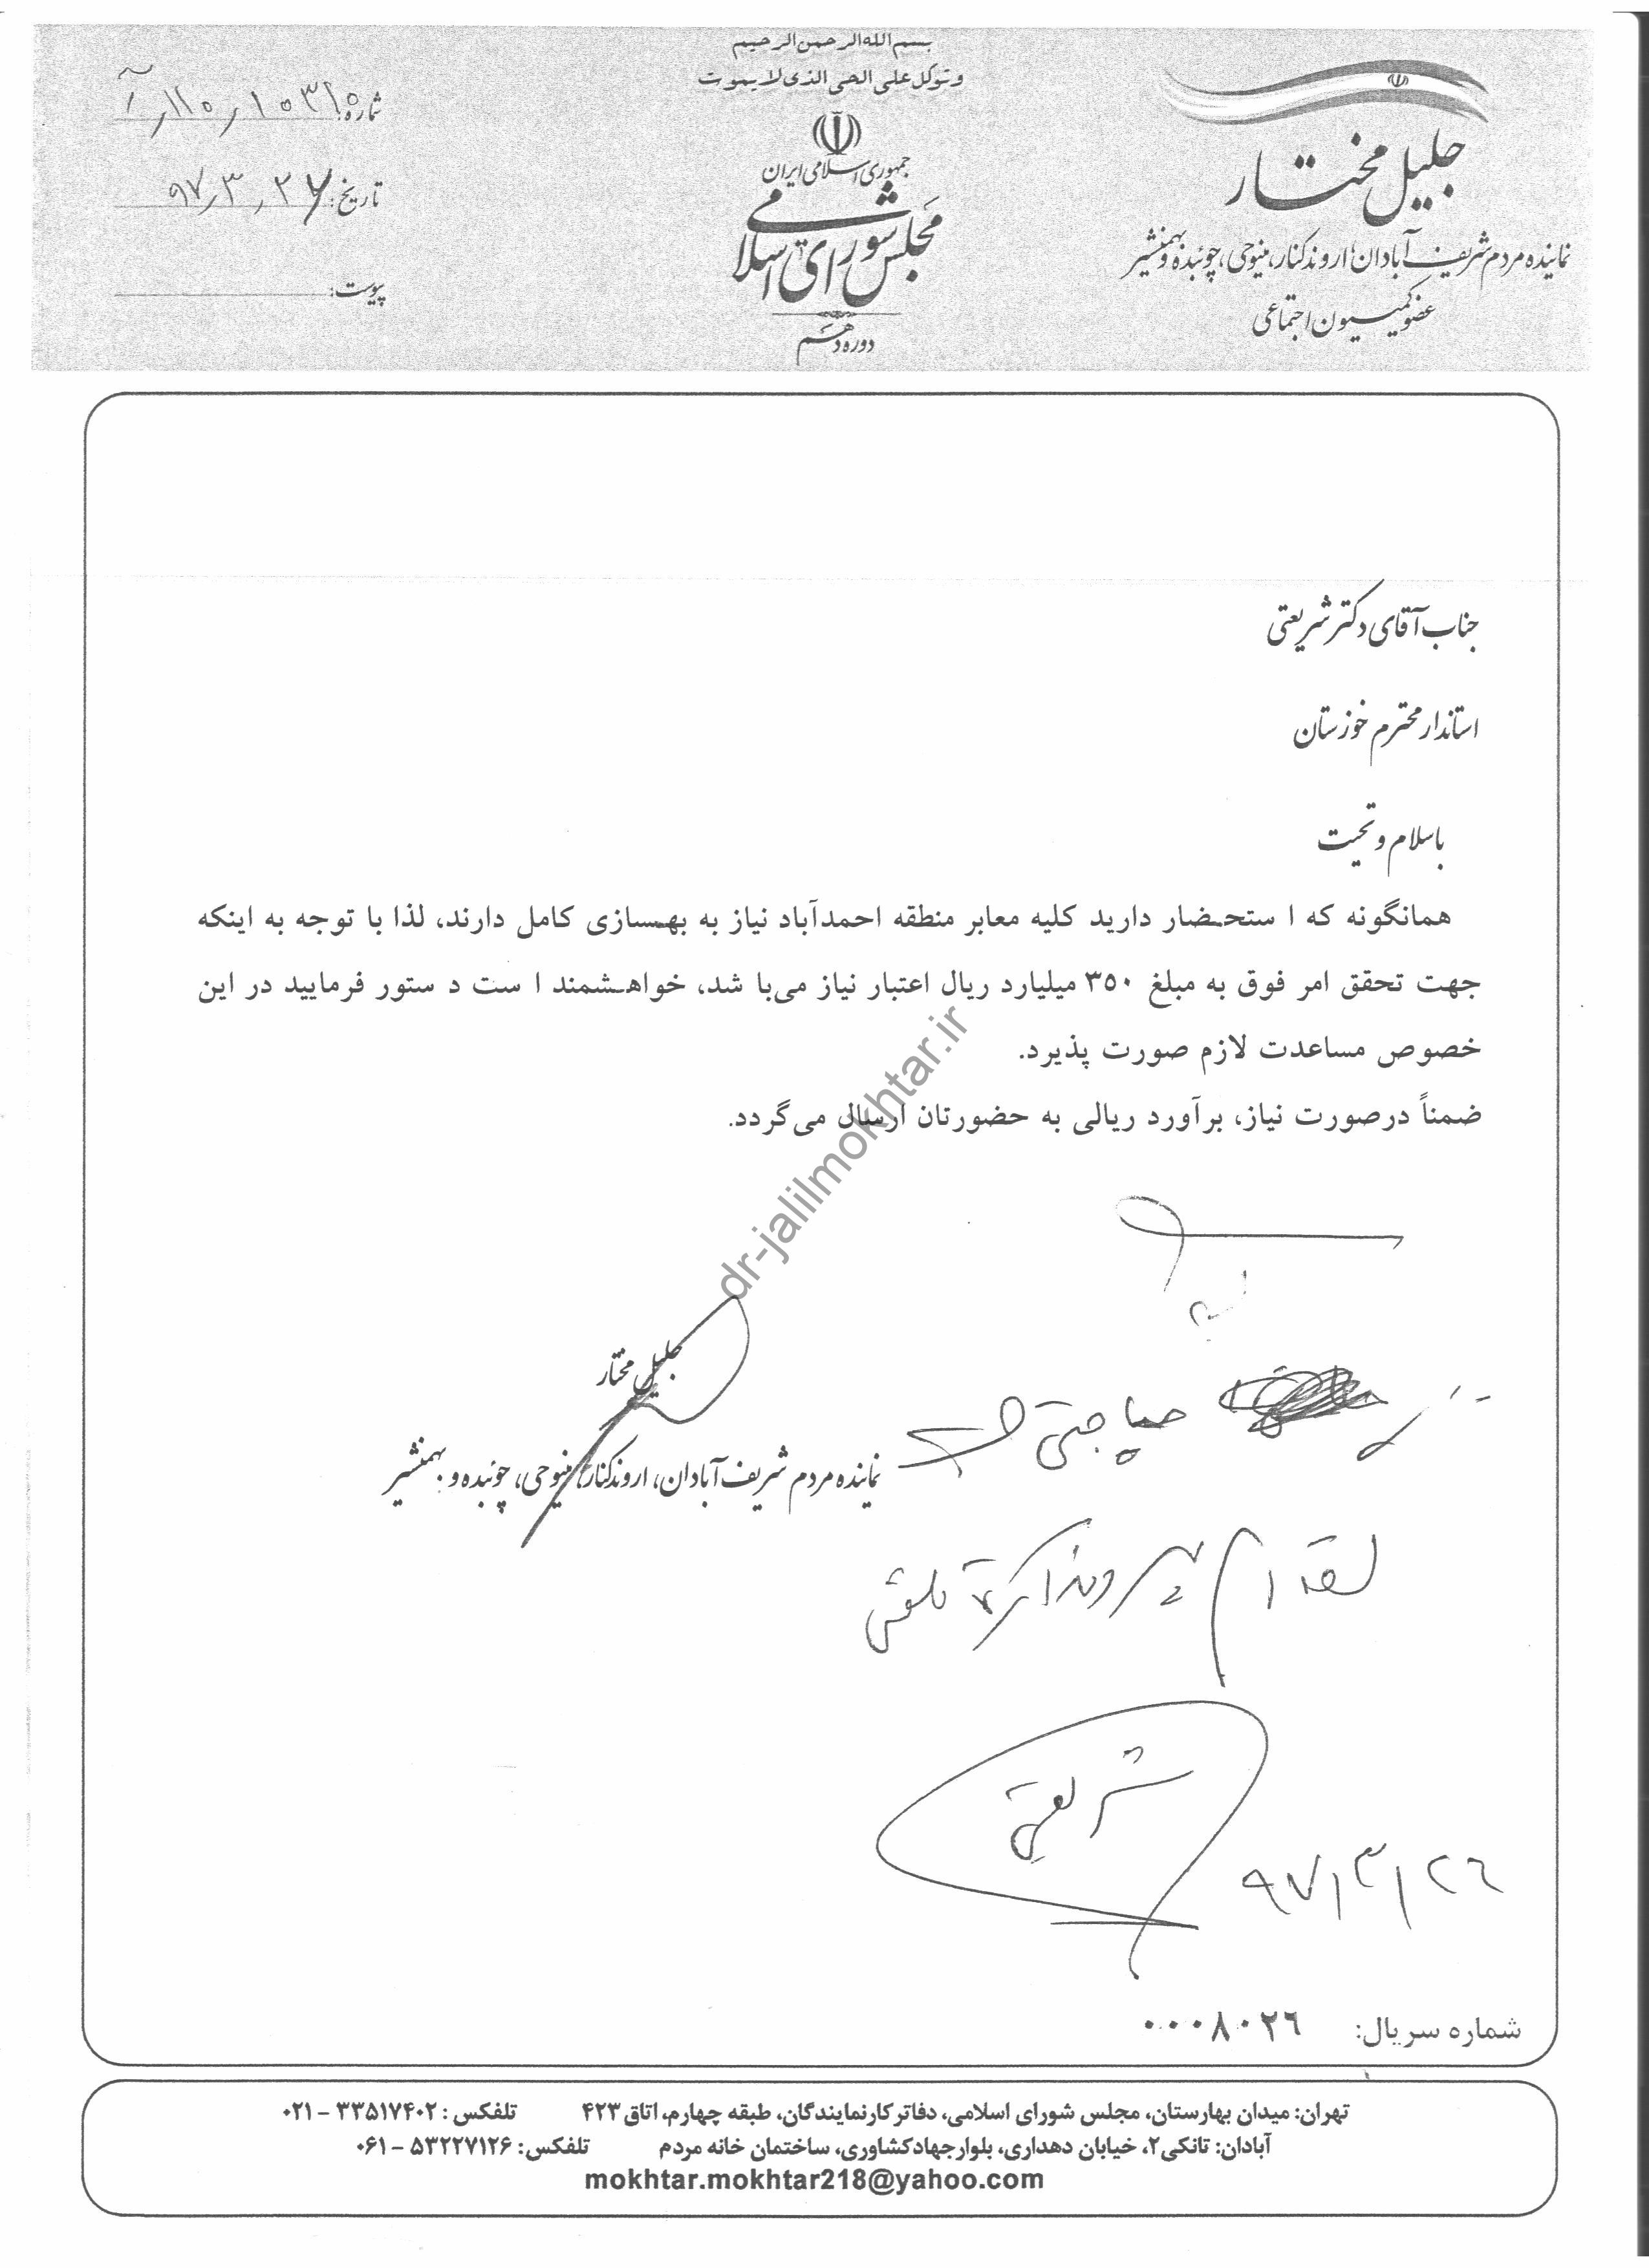 بسم الله الرحمن الرحیم
وتوکل علی الحی الذی لایموت
جمهوری اسلامی ایران
مجلس شورای اسلامی
دوره دهم
جلیل مختار
نماینده مردم شریف آبادان، اروندکنار، مینوحی، چوئبده و بهمنشیر
عضو کمیسیون اجتماعی
شماره:
تاریخ: ۹۷,۳,۲۶
پیوست:
جناب آقای دکتر شریعتی
استاندار محترم خوزستان
باسلام و تحیت
همانگونه که ا ستحضار دارید کلیه معابر منطقه احمدآباد نیاز به بهسازی کامل دارند، لذا با توجه به اینکه
جهت تحقق امر فوق به مبلغ ۳۵۰ میلیارد ریال اعتبار نیاز می‌با شد، خواهشمند ا ست د ستور فرمایید در این
خصوص مساعدت لازم صورت پذیرد.
ضمناً درصورت نیاز، برآورد ریالی به حضورتان ارسال می‌گردد.
dr-jalilmokhtar.ir
جلیل مختار
نماینده مردم شریف آبادان، اروندکنار، مینوحی، چوئبده و بهمنشیر
شریعتی
۹۷/۳/۲۶
شماره سریال: ۰۰۰۸۰۲۶
تهران: میدان بهارستان، مجلس شورای اسلامی، دفاتر کارنمایندگان، طبقه چهارم، اتاق ۴۲۳ تلفکس : ۳۳۵۱۷۴۰۲ – ۰۲۱
آبادان: تانکی۲، خیابان دهداری، بلوارجهادکشاوری، ساختمان خانه مردم تلفکس: ۵۳۲۲۷۱۲۶ – ۰۶۱
mokhtar.mokhtar218@yahoo.com